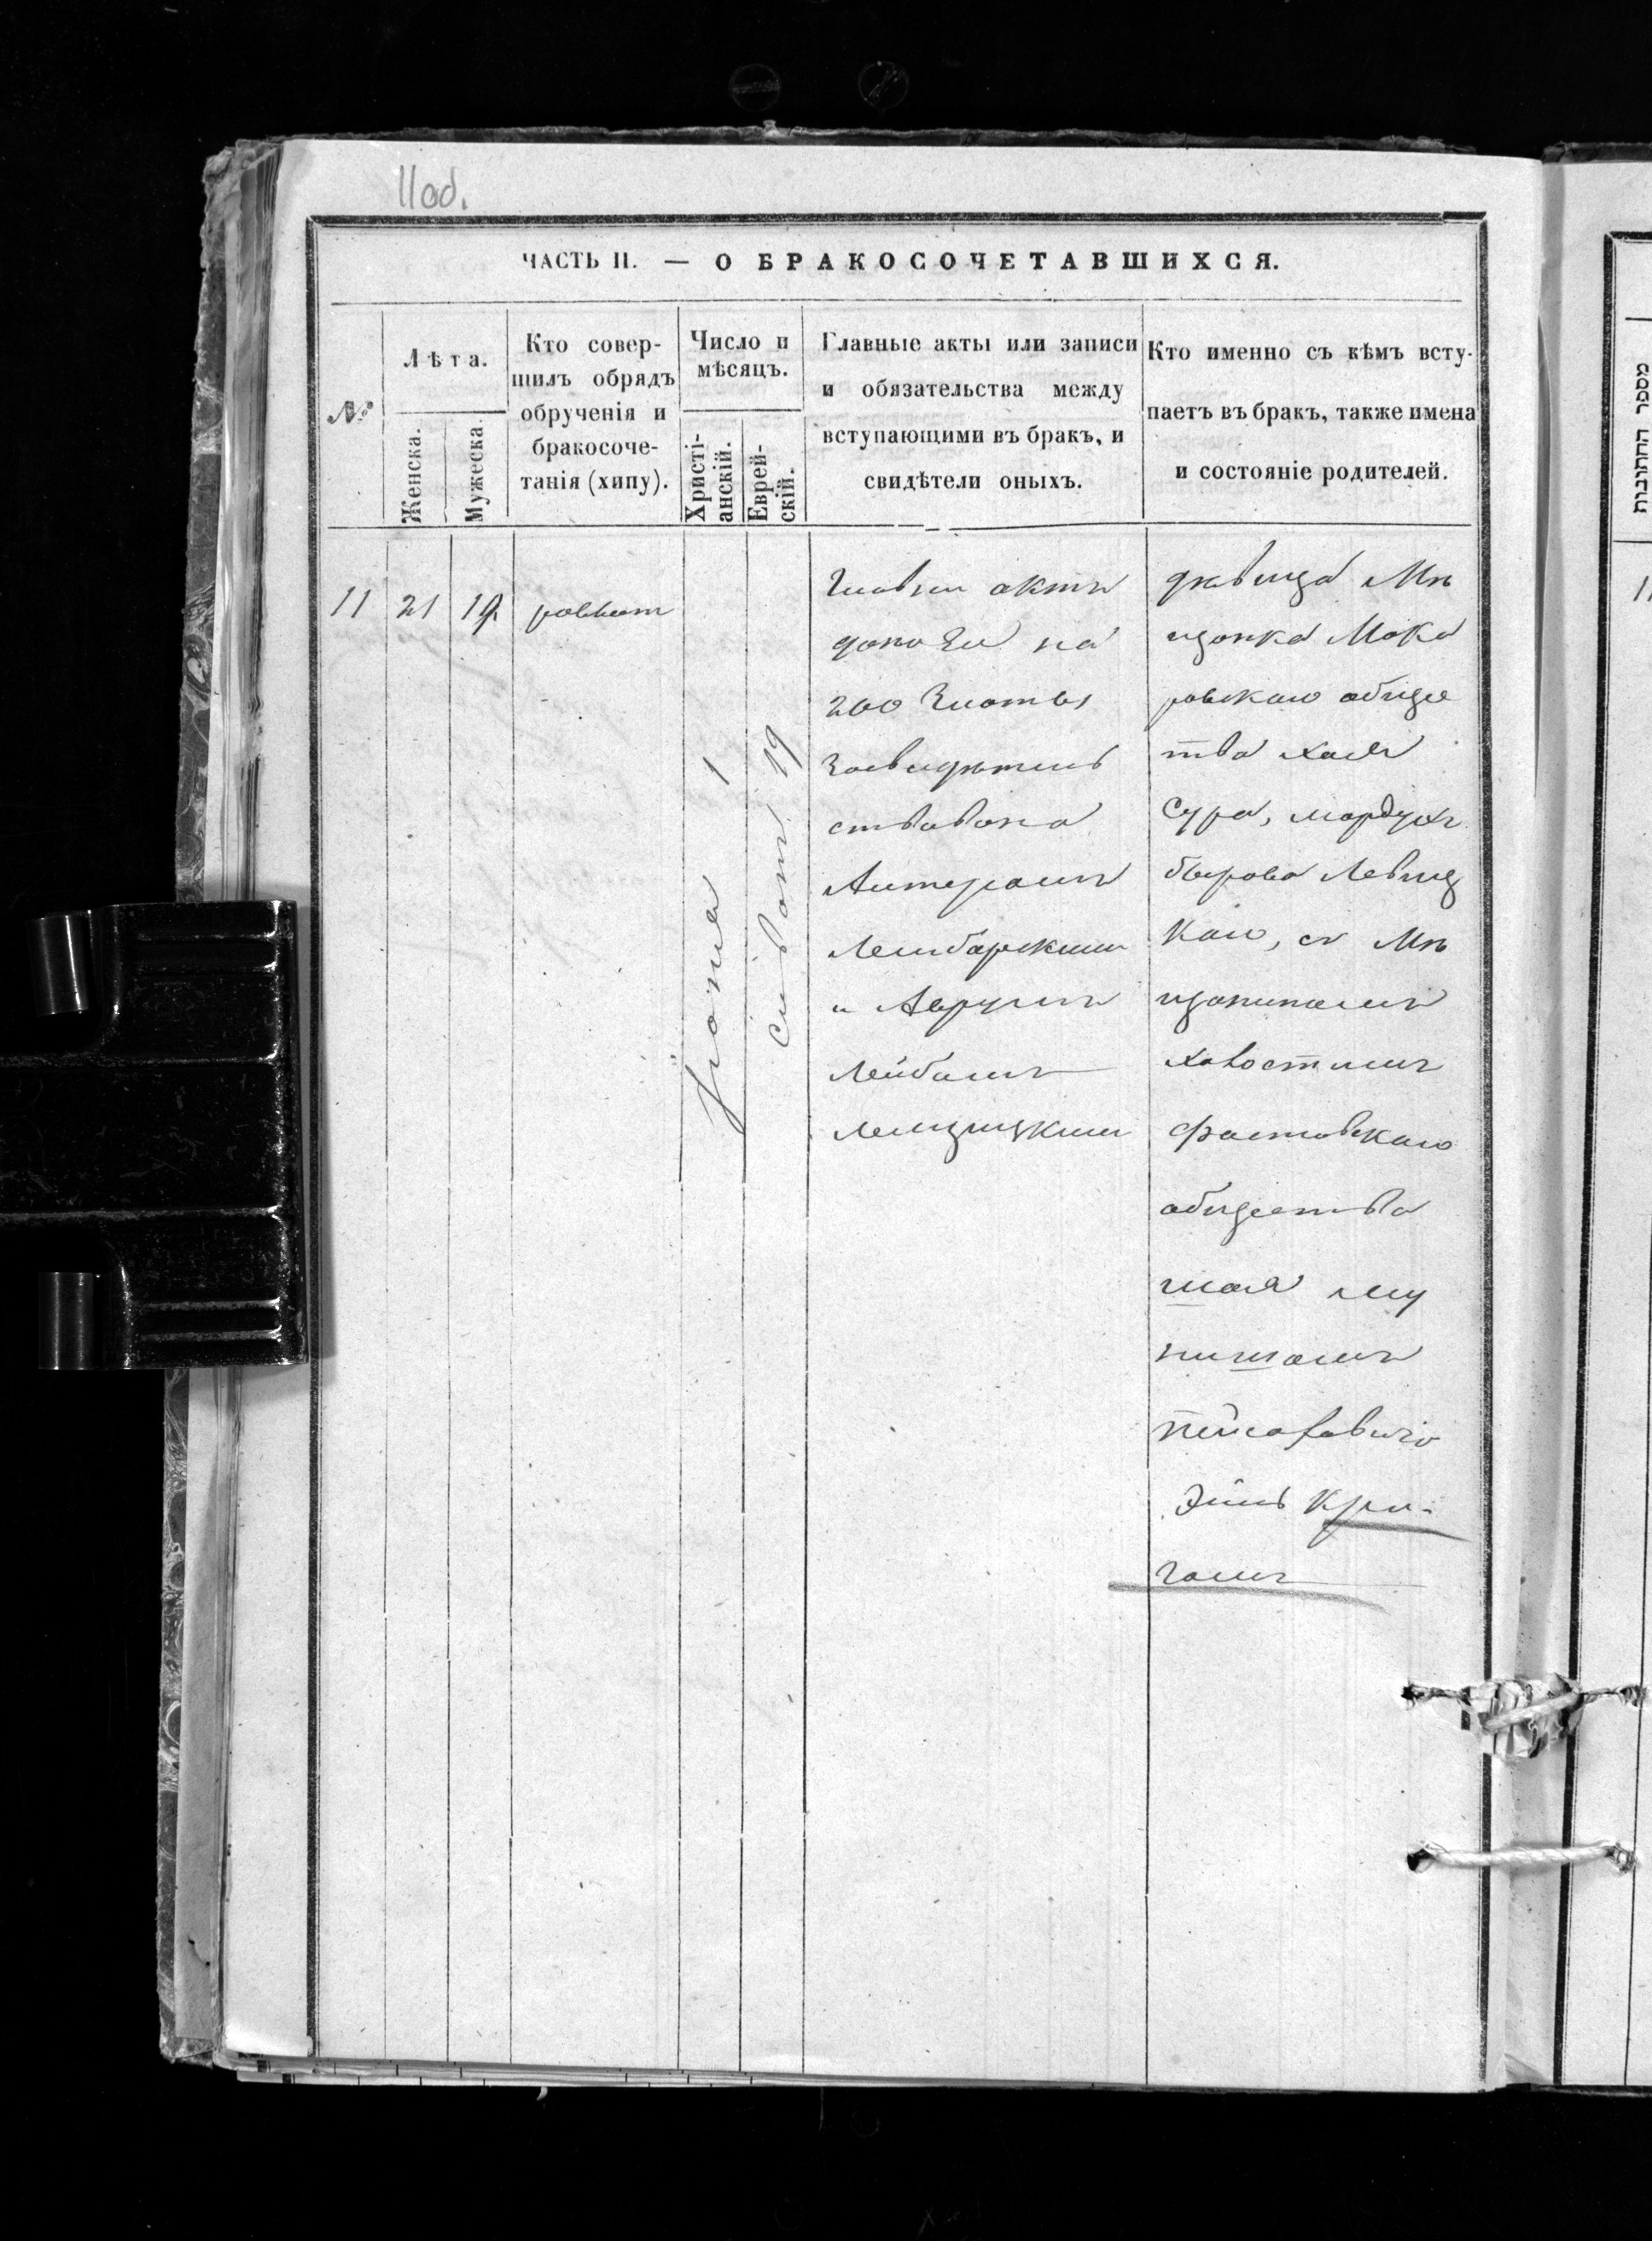 11об.
ЧАСТЬ II. — О БРАКОСОЧЕТАВШИХСЯ.
№
Лѣта.
Женска.
Мужеска.
Кто совер-
шилъ обрядъ
обрученія и
бракосоче-
танія (хипу).
Число и
мѣсяцъ.
Христі-
анскій.
Еврей-
скій.
Главные акты или записи
и обязательства между
вступающими въ бракъ, и
свидѣтели оныхъ.
Кто именно съ кѣмъ всту-
паетъ въ бракъ, также имена
и состояніе родителей.
11
21
19
раввин
Іюня 1
сивон 19
Главни актъ
на
200 Злоты
Засвидѣтель
ствована
Лембарским
и Аврумъ
Лейбомъ
дѣвица Мѣ
щанка Мака
ровскаго общес
тва Хая
Сура, Мордухъ
берова Левиц
каго, съ Мѣ
щаниномъ
холостимъ
Фастовскаго
общества
Пейсаховичо
מספר החתונות
11